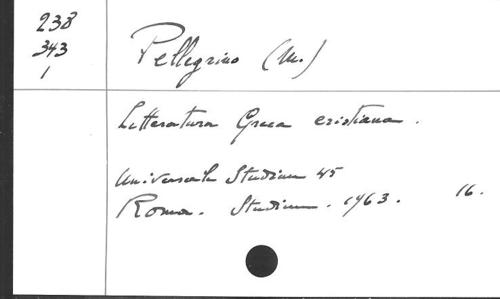 238
343
1
Pellegrino (M.)
Letteratura Greca cristiana.
Universale Studium 45
Roma. Studium. 1963. 16.